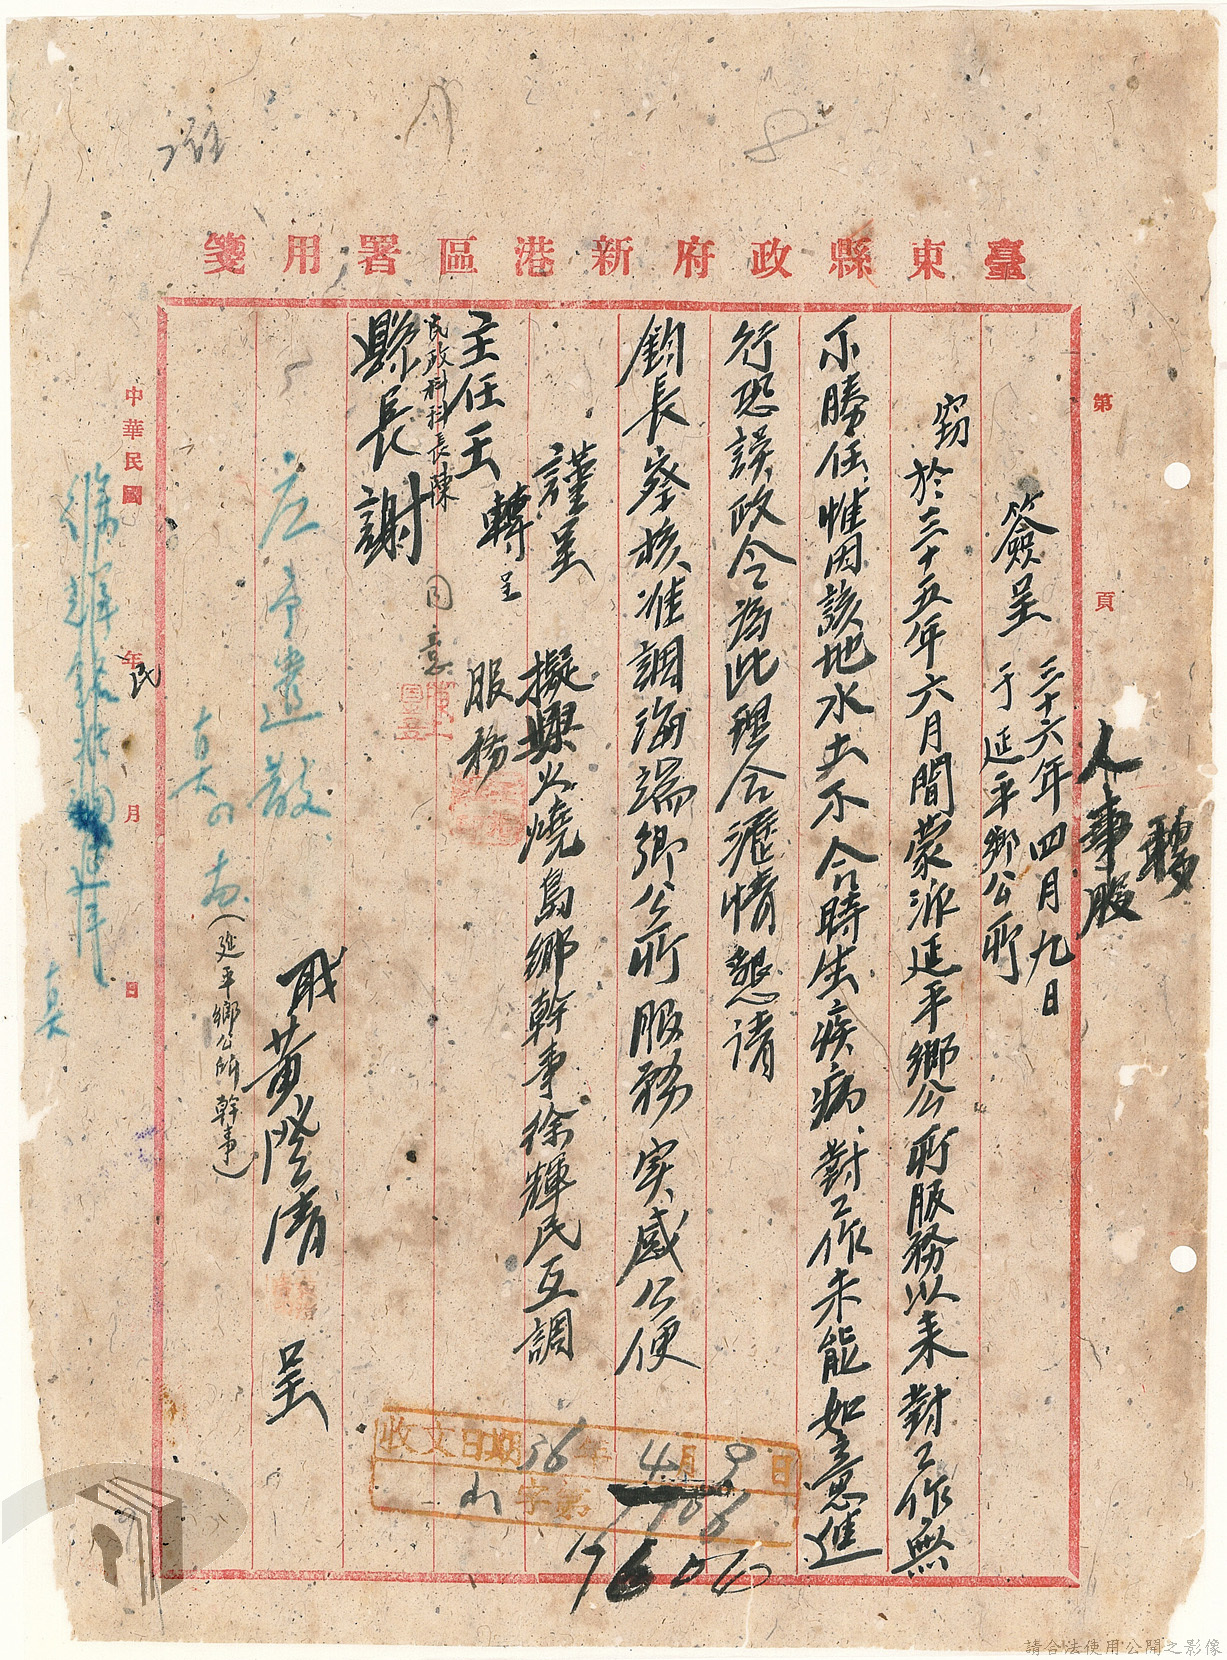 臺東縣政府新港區署用箋
第 頁
人事股
簽呈 三十六年四月九日
于延平鄉公所
竊於三十五年六月間蒙派延平鄉公所服務以來對工作無
不勝任、惟因該地水土不合時生疾病、對工作未能如意進
行恐誤政令為此理合瀝情懇請
鈞長察核准調海端鄉公所服務实感公便
謹呈
擬與火燒島鄉幹事徐輝民互調
服務
主任王 轉呈
民政科科長陳
同意
縣長謝
職黃陞清 呈
(延平鄉公所幹事)
中華民國 年 月 日
民
收文日期36年4月9日
字第
請合法使用公開之影像